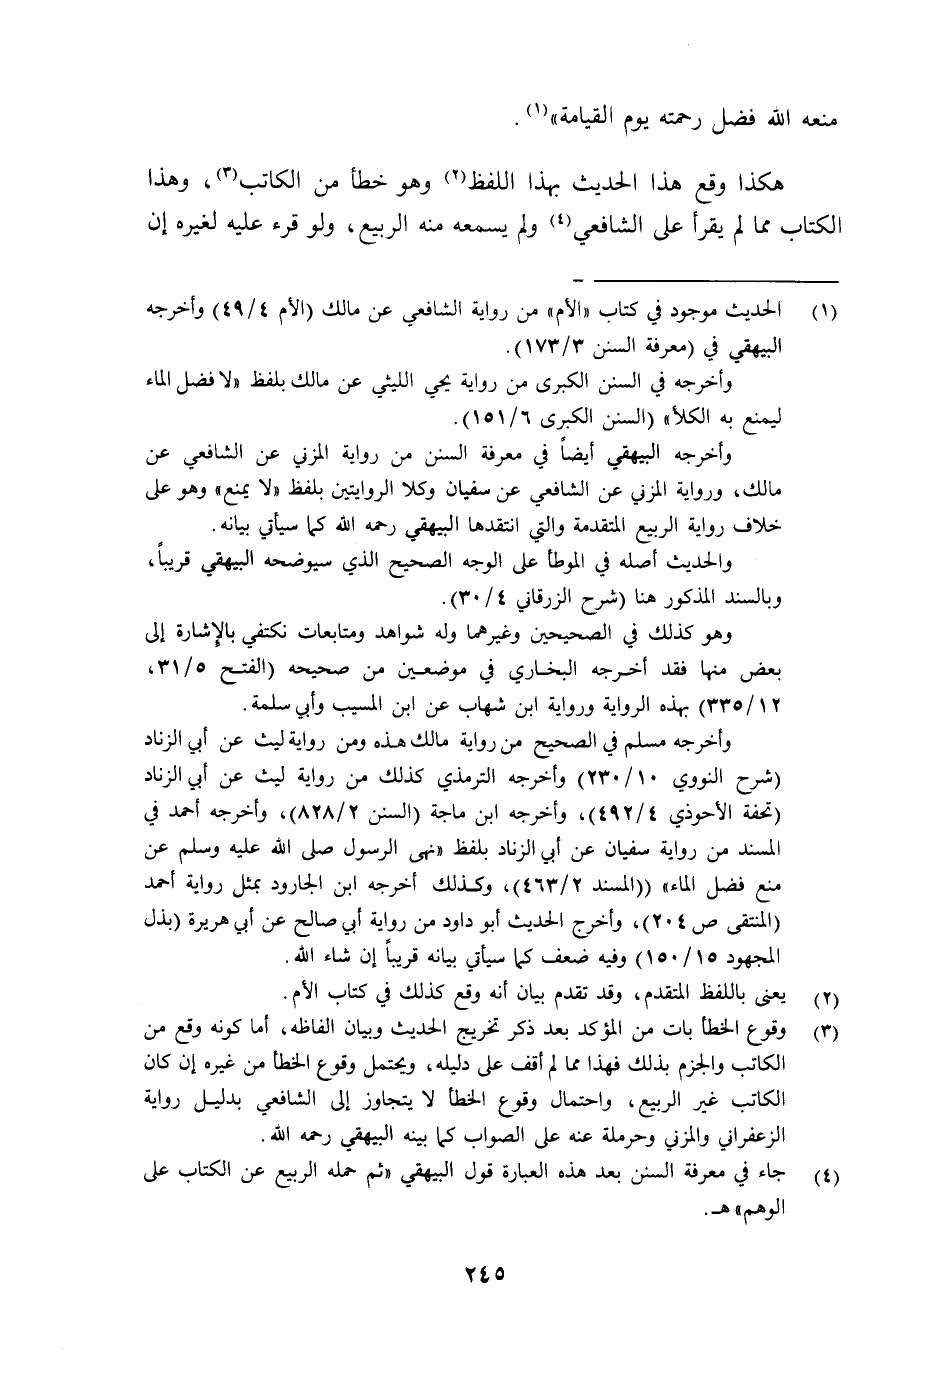 منعه الله فضل رحمته يوم القيامة»(١) .
هكذا وقع هذا الحديث بهذا اللفظ(٢) وهو خطأ من الكاتب(٣)، وهذا
الكتاب مما لم يقرأ على الشافعي(٤) ولم يسمعه منه الربيع، ولو قرء عليه لغيره إن
(١) الحديث موجود في كتاب «الأم» من رواية الشافعي عن مالك (الأم ٤٩/٤) وأخرجه
البيهقي في (معرفة السنن ١٧٣/٣).
وأخرجه في السنن الكبرى من رواية يحي الليثي عن مالك بلفظ «لا فضل الماء
ليمنع به الكلأ» (السنن الكبرى ١٥١/٦).
وأخرجه البيهقي أيضاً في معرفة السنن من رواية المزني عن الشافعي عن
مالك، ورواية المزني عن الشافعي عن سفيان وكلا الروايتين بلفظ «لا يمنع» وهو على
خلاف رواية الربيع المتقدمة والتي انتقدها البيهقي رحمه الله كما سيأتي بيانه.
والحديث أصله في الموطأ على الوجه الصحيح الذي سيوضحه البيهقي قريباً،
وبالسند المذكور هنا (شرح الزرقاني ٣٠/٤).
وهو كذلك في الصحيحين وغيرهما وله شواهد ومتابعات نكتفي بالإشارة إلى
بعض منها فقد أخرجه البخاري في موضعين من صحيحه (الفتح ٣١/٥،
٣٣٥/١٢) بهذه الرواية ورواية ابن شهاب عن ابن المسيب وأبي سلمة.
وأخرجه مسلم في الصحيح من رواية مالك هذه ومن رواية ليث عن أبي الزناد
(شرح النووي ٢٣٠/١٠) وأخرجه الترمذي كذلك من رواية ليث عن أبي الزناد
(تحفة الأحوذي ٤٩٢/٤)، وأخرجه ابن ماجة (السنن ٨٢٨/٢)، وأخرجه أحمد في
المسند من رواية سفيان عن أبي الزناد بلفظ «نهى الرسول صلى الله عليه وسلم عن
منع فضل الماء» ((المسند ٤٦٣/٢)، وكذلك أخرجه ابن الجارود بمثل رواية أحمد
(المنتقى ص ٢٠٤)، وأخرج الحديث أبو داود من رواية أبي صالح عن أبي هريرة (بذل
المجهود ١٥٠/١٥) وفيه ضعف كما سيأتي بيانه قريباً إن شاء الله.
(٢) يعنى باللفظ المتقدم، وقد تقدم بيان أنه وقع كذلك في كتاب الأم.
(٣) وقوع الخطأ بات من المؤكد بعد ذكر تخريج الحديث وبيان الفاظه، أما كونه وقع من
الكاتب والجزم بذلك فهذا مما لم أقف على دليله، ويحتمل وقوع الخطأ من غيره إن كان
الكاتب غير الربيع، واحتمال وقوع الخطأ لا يتجاوز إلى الشافعي بدليل رواية
الزعفراني والمزني وحرملة عنه على الصواب كما بينه البيهقي رحمه الله.
(٤) جاء في معرفة السنن بعد هذه العبارة قول البيهقي «ثم حمله الربيع عن الكتاب على
الوهم» هـ.
٢٤٥